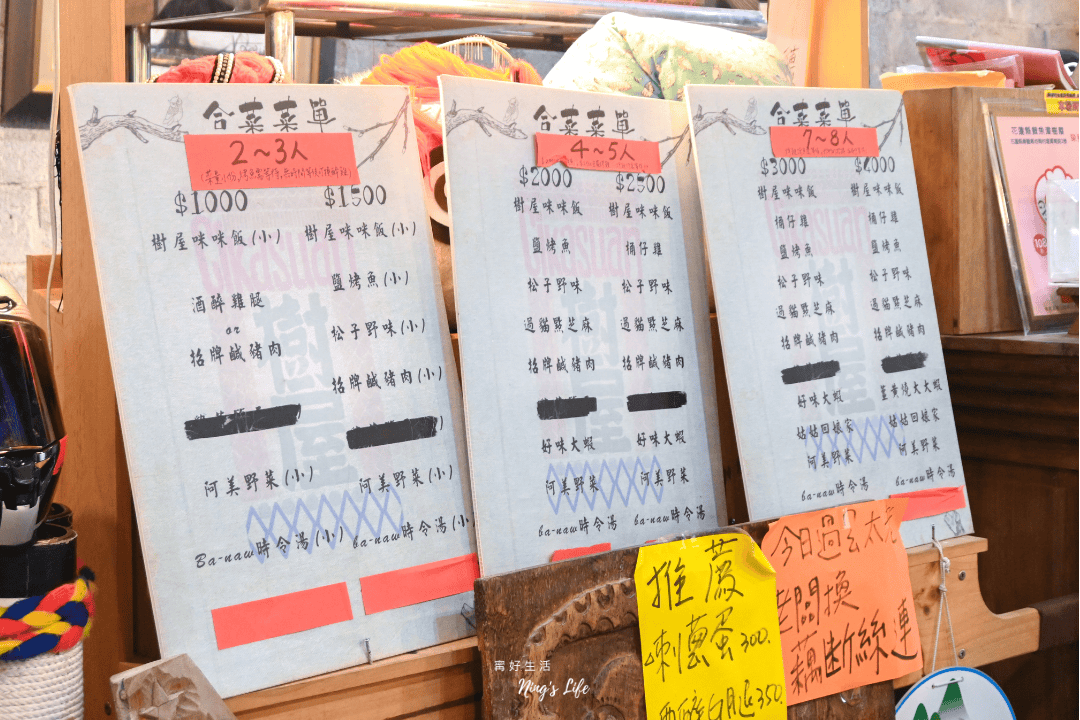 合菜菜單
2～3人
$1000
$1500
樹屋咪咪飯(小)
樹屋咪咪飯(小)
酒醉雞腿
鹽烤魚(小)
or
松子野味(小)
招牌鹹豬肉
招牌鹹豬肉(小)
阿美野菜(小)
阿美野菜(小)
Ba-naw時令湯(小)
ba-naw時令湯(小
Cikasuan
樹屋
合菜菜單
4～5人
$2000
$2500
樹屋咪咪飯
樹屋咪咪飯
鹽烤魚
桶仔雞
松子野味
松子野味
過貓點芝麻
過貓點芝麻
招牌鹹豬肉
招牌鹹豬肉
好味大蝦
好味大蝦
阿美野菜
阿美野菜
ba-naw時令湯
ba-naw時令湯
合菜菜單
7～8人
$3000
樹屋咪咪飯
樹屋咪咪飯
桶仔雞
桶仔雞
鹽烤魚
鹽烤魚
松子野味
松子野味
過貓點芝麻
過貓點芝麻
招牌鹹豬肉
招牌鹹豬肉
好味大蝦
薑黃燒大大蝦
姑姑回娘家
姑姑回娘家
阿美野菜
阿美野菜
ba-naw時令湯
ba-naw時令湯
推薦
刺蔥蛋300.
350.
今日過
老闆換
藕斷絲連
寗好生活
Ning's Life